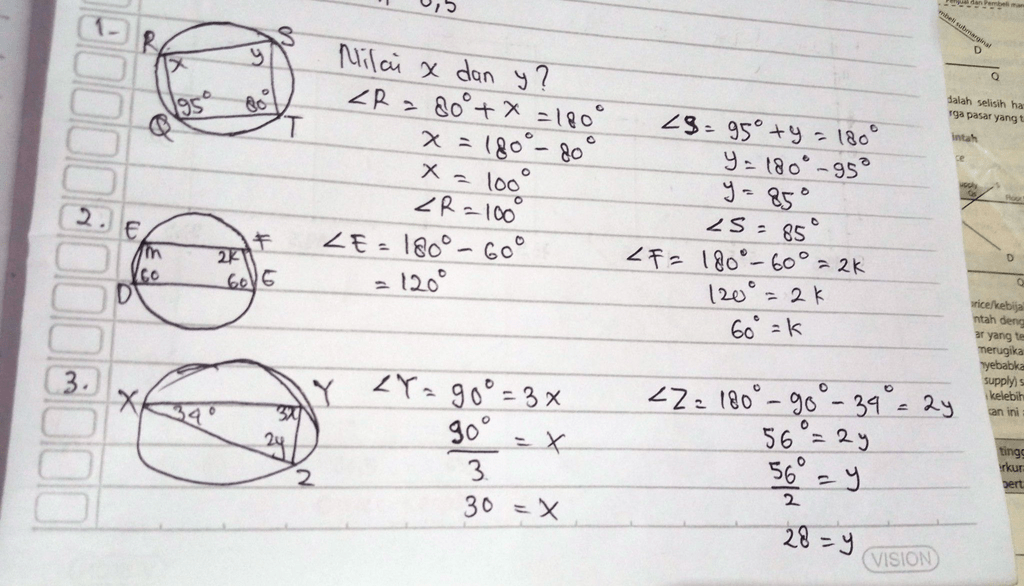 0,5
1-
R
S
x
y
95°
80°
Q
T
Nilai x dan y?
∠R = 80° + x = 180°
x = 180° - 80°
x = 100°
∠R = 100°
∠S = 95° + y = 180°
y = 180° - 95°
y = 85°
∠S = 85°
2.
E
F
m
2k
60
60
D
G
∠E = 180° - 60°
= 120°
∠F = 180° - 60° = 2k
120° = 2k
60° = k
3.
X
Y
34°
3x
2y
Z
∠Y = 90° = 3x
90°
3
= x
30 = x
∠Z = 180° - 90° - 34° = 2y
56° = 2y
56°
2
= y
28 = y
VISION
mbeli submarginal
D
Q
dalah selisih ha
rga pasar yang t
intah
D
Q
price/kebija
ntah deng
ar yang te
merugika
nyebabka
supply) s
kelebih
kan ini
ting
rkur
pert